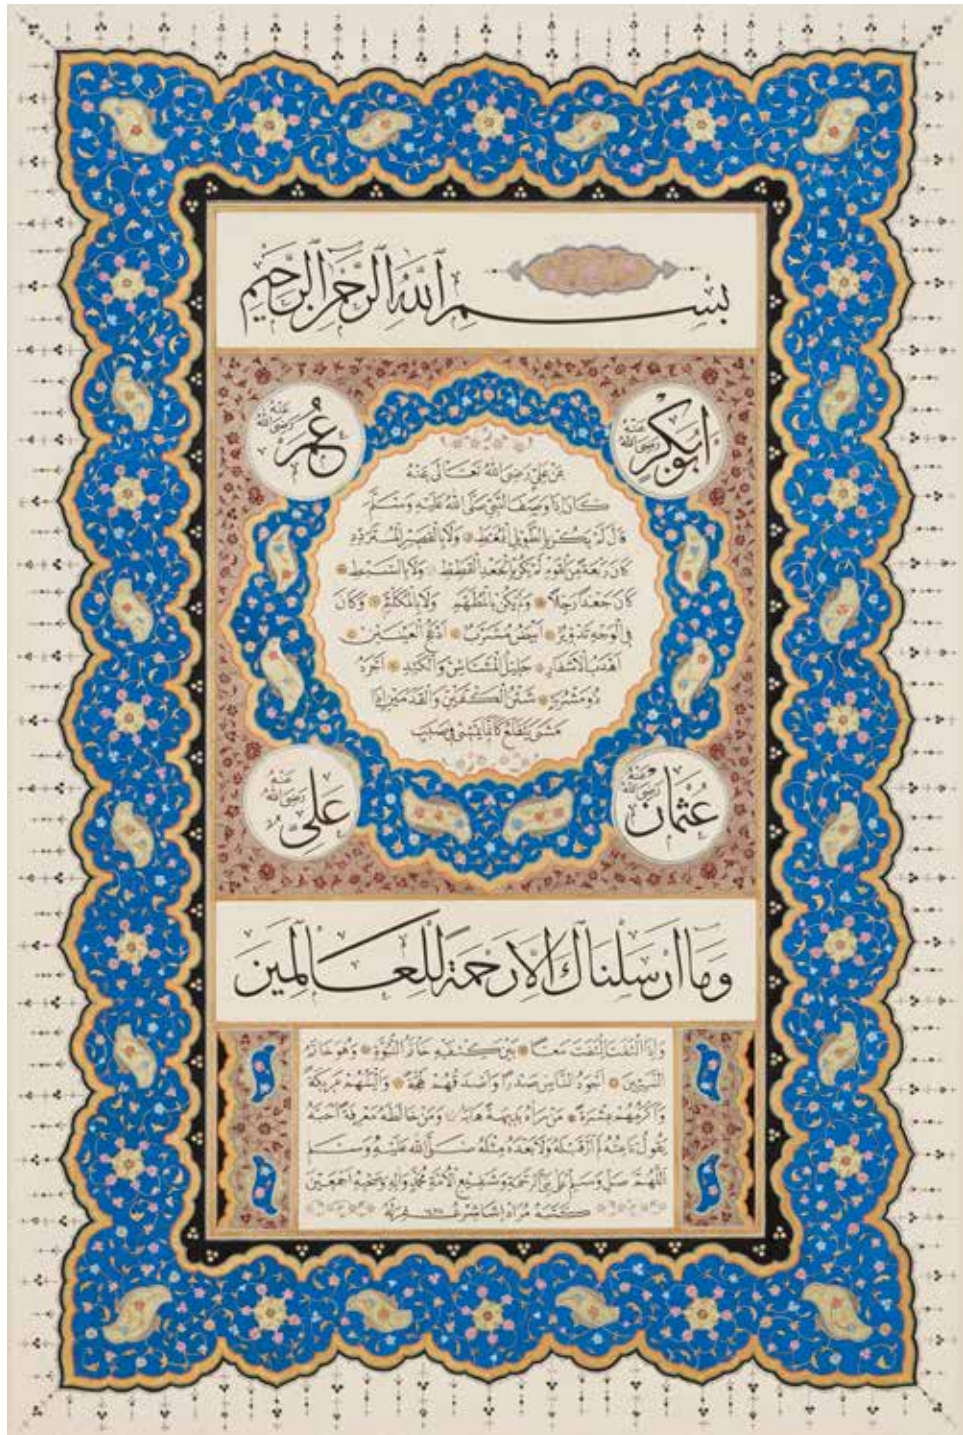 بِسْمِ اللّٰهِ الرَّحْمٰنِ الرَّحِيمِ
ابوبكر رضى الله عنه
عمر رضى الله عنه
عن علي رضى الله تعالى عنه
كان اذا وصف النبي صلى الله عليه وسلم
قال لم يكن بالطويل الممغط ❁ ولا بالقصير المتردد
كان ربعة من القوم لم يكن بالجعد القطط ❁ ولا بالسبط ❁
كان جعدا رجلا ❁ ولم يكن بالمطهم ولا بالمكلثم ❁ وكان
في الوجه تدوير ❁ ابيض مشرب ❁ ادعج العينين ❁
اهدب الاشفار ❁ جليل المشاش والكتد ❁ اجرد
ذو مسربة ❁ شثن الكفين والقدمين اذا
مشى يتقلع كانما يمشي في صبب
عثمان رضى الله عنه
علي رضى الله عنه
وَمَا اَرْسَلْنَاكَ اِلَّا رَحْمَةً لِلْعَالَمِينَ
واذا التفت التفت معا ❁ بين كتفيه خاتم النبوة ❁ وهو خاتم
النبيين ❁ اجود الناس صدرا واصدقهم لهجة ❁ والينهم عريكة
واكرمهم عشرة ❁ من رآه بديهة هابه ❁ ومن خالطه معرفة احبه
يقول ناعته لم ار قبله ولا بعده مثله صلى الله عليه وسلم
اللهم صل وسلم على نبي الرحمة وشفيع الامة محمد وآله وصحبه اجمعين
كتبه مراد غفر له